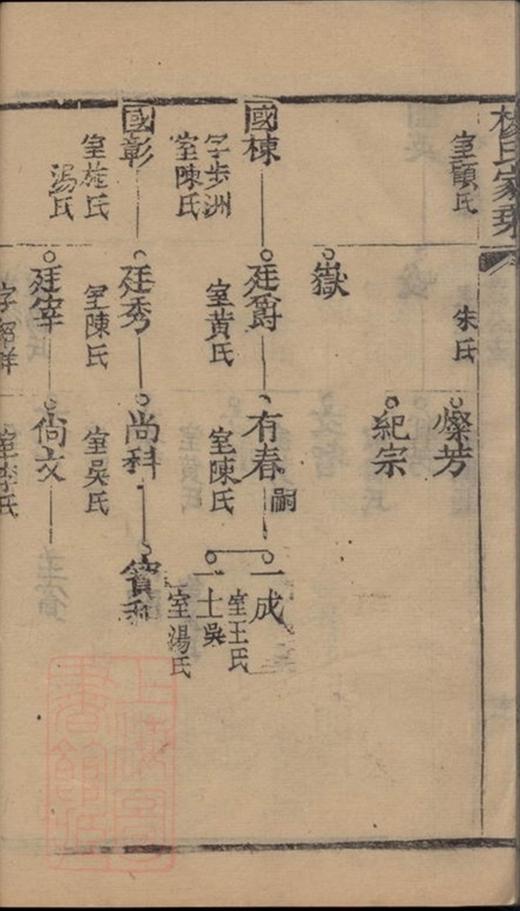 楊氏家乘
室顧氏
朱氏
燦芳
紀宗
嶽
國棟
字步洲
室陳氏
廷爵
室黃氏
有春
嗣
室陳氏
一成
室王氏
一士吳
室湯氏
國彰
室施氏
湯氏
廷秀
室陳氏
尚科
室吳氏
賓
廷宰
尚文
室李氏